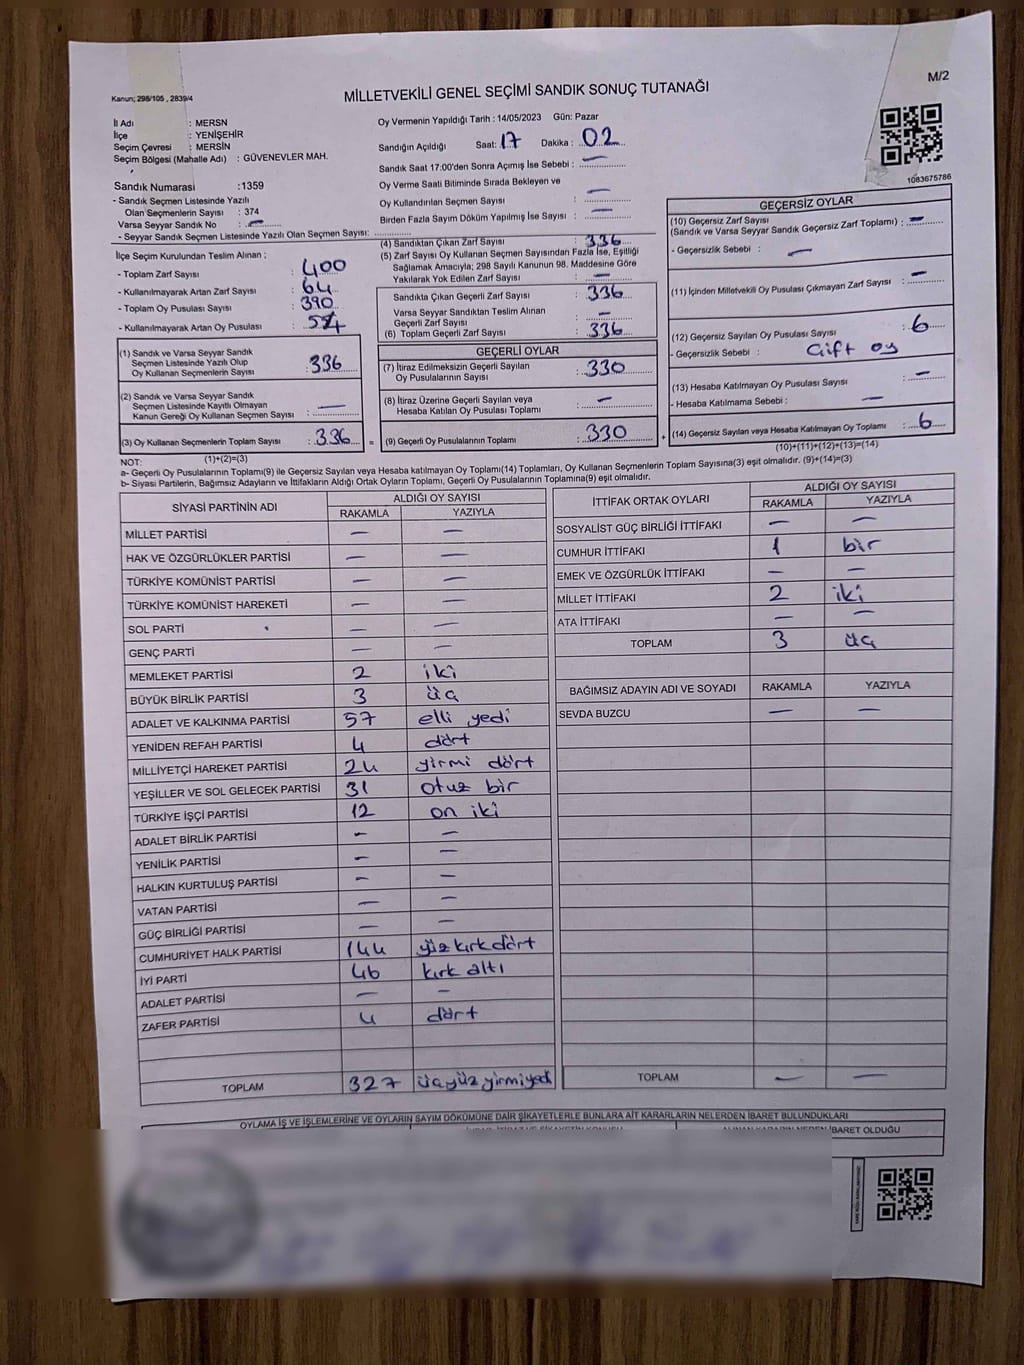 M/2
Kanun; 298/105 , 2839/4
MİLLETVEKİLİ GENEL SEÇİMİ SANDIK SONUÇ TUTANAĞI
1083675786
İl Adı : MERSN
İlçe : YENİŞEHİR
Seçim Çevresi : MERSİN
Seçim Bölgesi (Mahalle Adı) : GÜVENEVLER MAH.
Sandık Numarası :1359
- Sandık Seçmen Listesinde Yazılı
Olan Seçmenlerin Sayısı : 374
Varsa Seyyar Sandık No : —
- Seyyar Sandık Seçmen Listesinde Yazılı Olan Seçmen Sayısı:
İlçe Seçim Kurulundan Teslim Alınan ;
- Toplam Zarf Sayısı : 400
- Kullanılmayarak Artan Zarf Sayısı : 64
- Toplam Oy Pusulası Sayısı : 390
- Kullanılmayarak Artan Oy Pusulası : 54
(1) Sandık ve Varsa Seyyar Sandık
Seçmen Listesinde Yazılı Olup
Oy Kullanan Seçmenlerin Sayısı : 336
(2) Sandık ve Varsa Seyyar Sandık
Seçmen Listesinde Kayıtlı Olmayan
Kanun Gereği Oy Kullanan Seçmen Sayısı : —
(3) Oy Kullanan Seçmenlerin Toplam Sayısı : 336 =
(1)+(2)=(3)
Oy Vermenin Yapıldığı Tarih : 14/05/2023 Gün: Pazar
Sandığın Açıldığı Saat: 17 Dakika : 02
Sandık Saat 17:00'den Sonra Açımış İse Sebebi : —
Oy Verme Saati Bitiminde Sırada Bekleyen ve
Oy Kullandırılan Seçmen Sayısı : —
Birden Fazla Sayım Döküm Yapılmış İse Sayısı : —
(4) Sandıktan Çıkan Zarf Sayısı : 336
(5) Zarf Sayısı Oy Kullanan Seçmen Sayısından Fazla İse, Eşitliği
Sağlamak Amacıyla; 298 Sayılı Kanunun 98. Maddesine Göre
Yakılarak Yok Edilen Zarf Sayısı : —
Sandıkta Çıkan Geçerli Zarf Sayısı : 336
Varsa Seyyar Sandıktan Teslim Alınan
Geçerli Zarf Sayısı : —
(6) Toplam Geçerli Zarf Sayısı : 336
GEÇERLİ OYLAR
(7) İtiraz Edilmeksizin Geçerli Sayılan
Oy Pusulalarının Sayısı : 330
(8) İtiraz Üzerine Geçerli Sayılan veya
Hesaba Katılan Oy Pusulası Toplamı : —
(9) Geçerli Oy Pusulalarının Toplamı : 330 +
GEÇERSİZ OYLAR
(10) Geçersiz Zarf Sayısı
(Sandık ve Varsa Seyyar Sandık Geçersiz Zarf Toplamı) : —
- Geçersizlik Sebebi : —
(11) İçinden Milletvekili Oy Pusulası Çıkmayan Zarf Sayısı : —
(12) Geçersiz Sayılan Oy Pusulası Sayısı : 6
- Geçersizlik Sebebi : Çift oy
(13) Hesaba Katılmayan Oy Pusulası Sayısı : —
- Hesaba Katılmama Sebebi : —
(14) Geçersiz Sayılan veya Hesaba Katılmayan Oy Toplamı : 6
(10)+(11)+(12)+(13)=(14)
NOT:
a- Geçerli Oy Pusulalarının Toplamı(9) ile Geçersiz Sayılan veya Hesaba katılmayan Oy Toplamı(14) Toplamları, Oy Kullanan Seçmenlerin Toplam Sayısına(3) eşit olmalıdır. (9)+(14)=(3)
b- Siyasi Partilerin, Bağımsız Adayların ve İttifakların Aldığı Ortak Oyların Toplamı, Geçerli Oy Pusulalarının Toplamına(9) eşit olmalıdır.
SİYASİ PARTİNİN ADI ALDIĞI OY SAYISI
RAKAMLA YAZIYLA
MİLLET PARTİSİ — —
HAK VE ÖZGÜRLÜKLER PARTİSİ — —
TÜRKİYE KOMÜNİST PARTİSİ — —
TÜRKİYE KOMÜNİST HAREKETİ — —
SOL PARTİ — —
GENÇ PARTİ — —
MEMLEKET PARTİSİ 2 iki
BÜYÜK BİRLİK PARTİSİ 3 üç
ADALET VE KALKINMA PARTİSİ 57 elli yedi
YENİDEN REFAH PARTİSİ 4 dört
MİLLİYETÇİ HAREKET PARTİSİ 24 yirmi dört
YEŞİLLER VE SOL GELECEK PARTİSİ 31 otuz bir
TÜRKİYE İŞÇİ PARTİSİ 12 on iki
ADALET BİRLİK PARTİSİ — —
YENİLİK PARTİSİ — —
HALKIN KURTULUŞ PARTİSİ — —
VATAN PARTİSİ — —
GÜÇ BİRLİĞİ PARTİSİ — —
CUMHURİYET HALK PARTİSİ 144 yüz kırk dört
İYİ PARTİ 46 kırk altı
ADALET PARTİSİ — —
ZAFER PARTİSİ 4 dört
TOPLAM 327 üçyüz yirmiyedi
İTTİFAK ORTAK OYLARI ALDIĞI OY SAYISI
RAKAMLA YAZIYLA
SOSYALİST GÜÇ BİRLİĞİ İTTİFAKI — —
CUMHUR İTTİFAKI 1 bir
EMEK VE ÖZGÜRLÜK İTTİFAKI — —
MİLLET İTTİFAKI 2 iki
ATA İTTİFAKI — —
TOPLAM 3 üç
BAĞIMSIZ ADAYIN ADI VE SOYADI RAKAMLA YAZIYLA
SEVDA BUZCU — —
TOPLAM — —
OYLAMA İŞ VE İŞLEMLERİNE VE OYLARIN SAYIM DÖKÜMÜNE DAİR ŞİKAYETLERLE BUNLARA AİT KARARLARIN NELERDEN İBARET BULUNDUKLARI
İBARET OLDUĞU